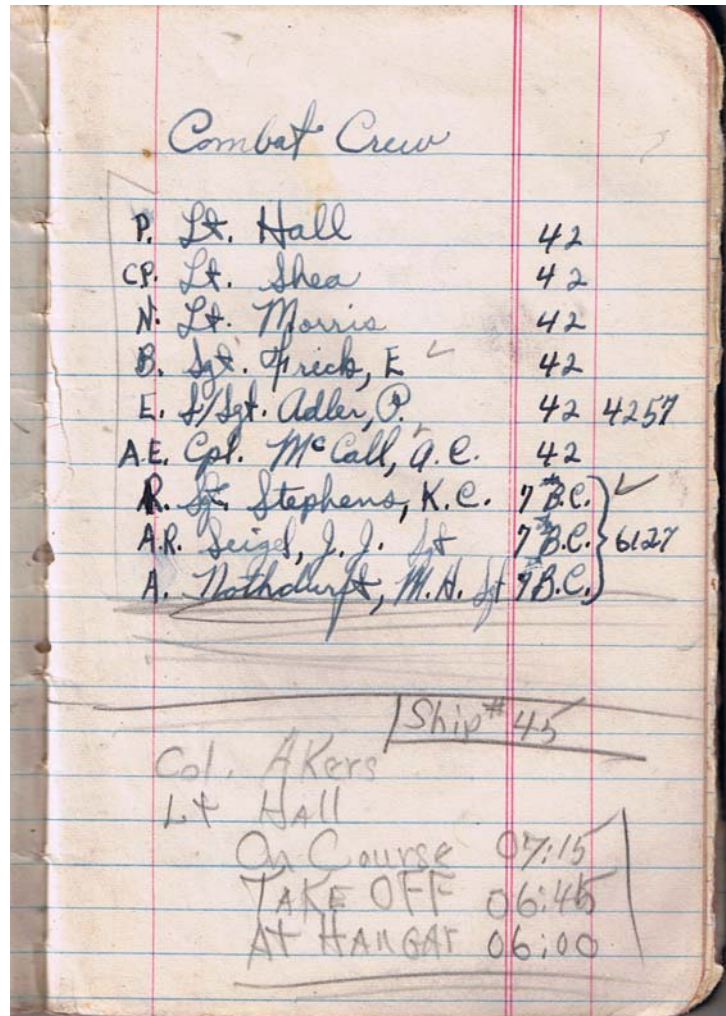 Combat Crew
P. Lt. Hall 42
CP. Lt. Shea 42
N. Lt. Morris 42
B. Sgt. Frick, E 42
E. S/Sgt. Adler, P. 42 4257
A.E. Cpl. McCall, A.C. 42
R. Sgt. Stephens, K.C. 7 B.C.
A.R. Seigel, J.J. Sgt 7 B.C. 6127
A. Nothdurft, M.H. Sgt 7 B.C.
Ship # 45
Col. Akers
Lt Hall
On Course 07:15
TAKE OFF 06:45
At HANGAr 06:00